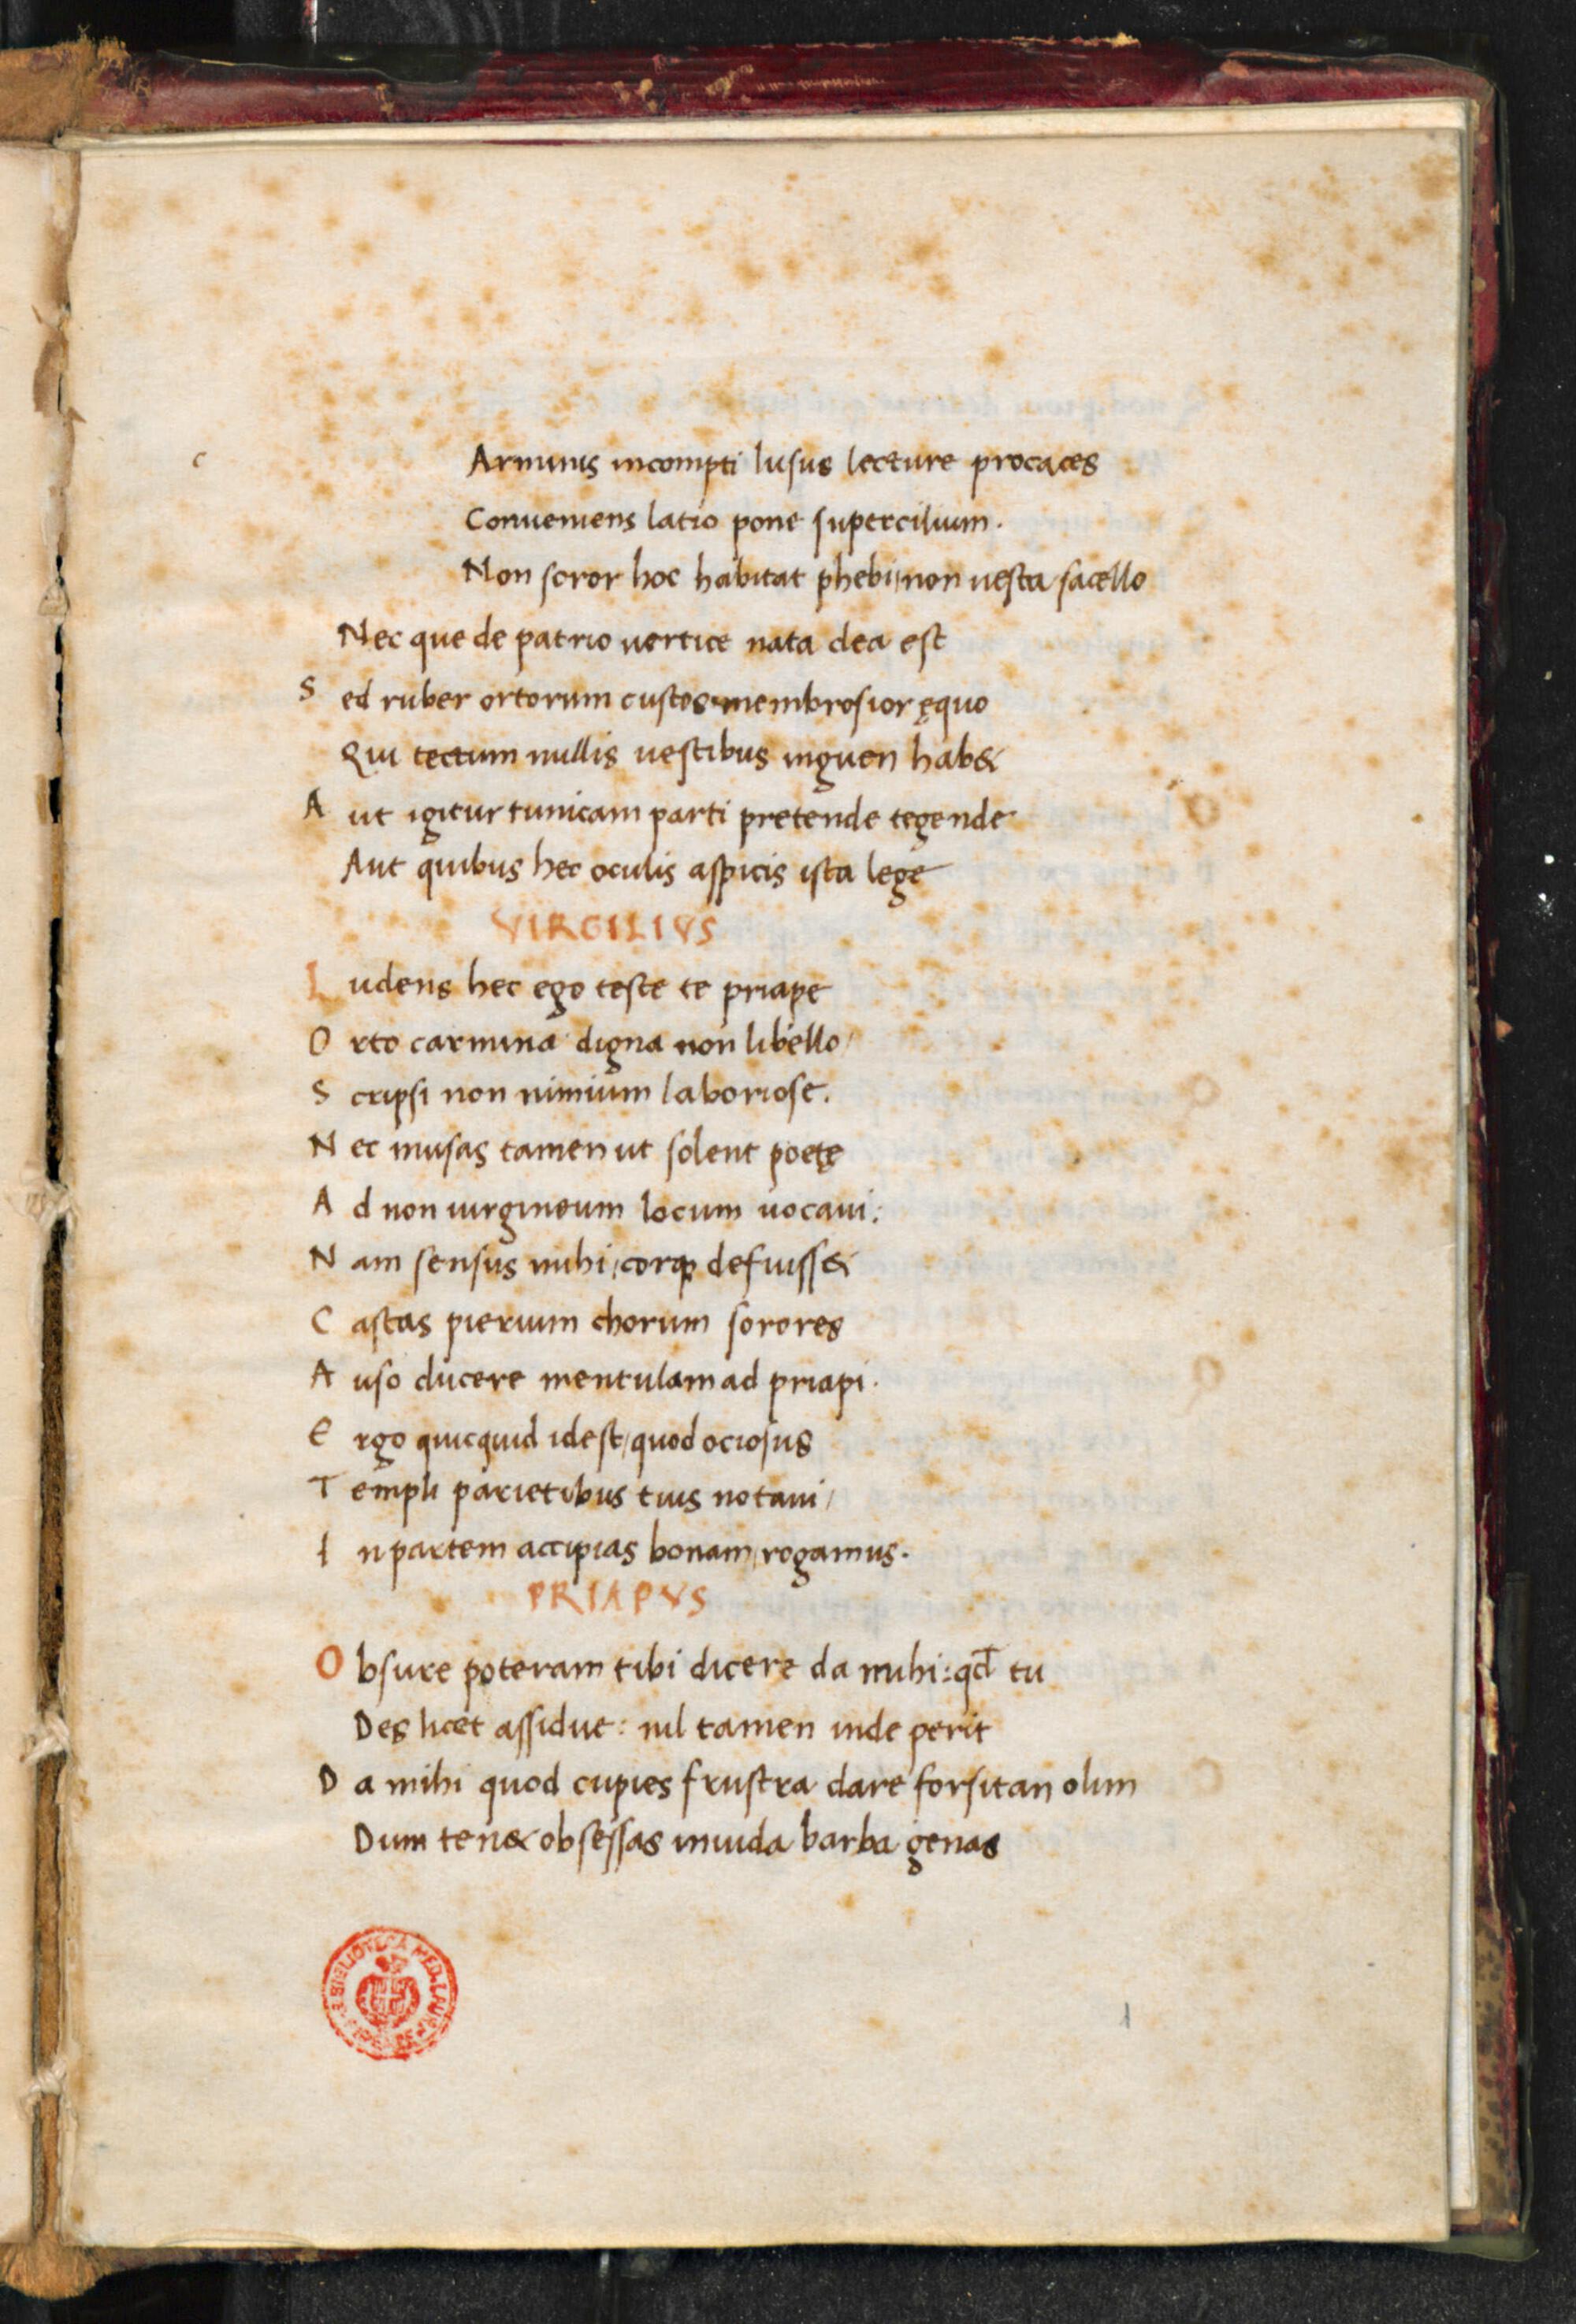 c Arminis incompti lusus lecture procaces
Conueniens latio pone supercilium.
Non soror hoc habitat phebi/non uesta sacello
Nec que de patrio uertice nata dea est
S ed ruber ortorum custos membrosior ęquo
Qui tectum nullis uestibus inguen hab&
A ut igitur tunicam parti pretende tegende
Aut quibus hec oculis aspicis ista lege
VIRGILIVS
L udens hec ego teste te priape
O rto carmina digna non libello/
S cripsi non nimium laboriose.
N ec musas tamen ut solent poetę
A d non uirgineum locum uocaui:
N am sensus mihi/corqꝫ defuiss&
C astas pierium chorum sorores
A uso ducere mentulam ad priapi.
E rgo quicquid id est/quod ociosus
T empli parietibus tuis notaui/
I n partem accipias bonam/rogamus.
PRIAPVS
O bsure poteram tibi dicere da mihi: qd̄ tu
Des licet assidue: nil tamen inde perit
D a mihi quod cupies frustra dare forsitan olim
Dum ten& obsessas inuida barba genas
BIBLIOTECA MED. LAUR.
1